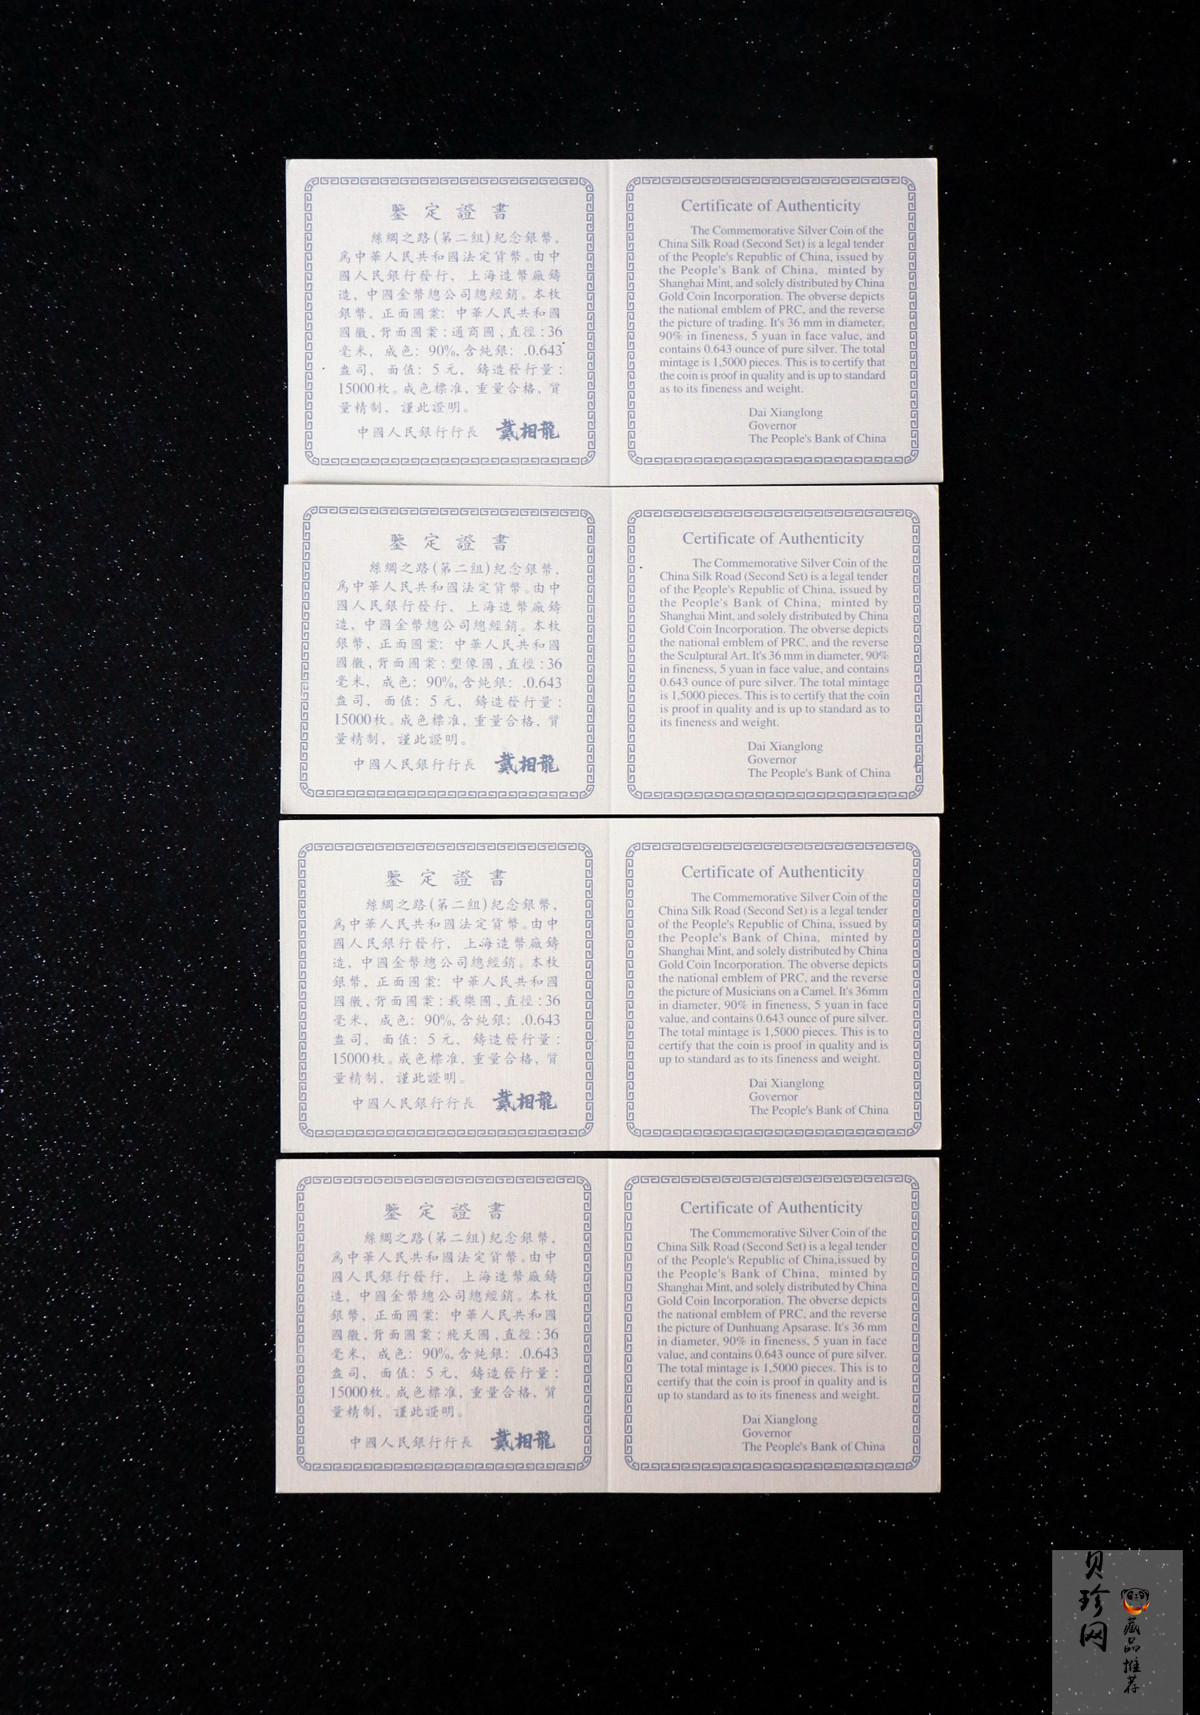 鑒定證書
絲綢之路(第二組)紀念銀幣,
爲中華人民共和國法定貨幣。由中
國人民銀行發行、上海造幣廠鑄
造,中國金幣總公司總經銷。本枚
銀幣,正面圖案: 中華人民共和國
國徽,背面圖案:通商圖,直徑:36
毫米, 成色: 90%,含純銀: .0.643
盎司, 面值: 5元, 鑄造發行量:
15000枚。成色標准,重量合格、質
量精制, 謹此證明。
中國人民銀行行長 戴相龍
Certificate of Authenticity
The Commemorative Silver Coin of the
China Silk Road (Second Set) is a legal tender
of the People's Republic of China, issued by
the People's Bank of China, minted by
Shanghai Mint, and solely distributed by China
Gold Coin Incorporation. The obverse depicts
the national emblem of PRC, and the reverse
the picture of trading. It's 36 mm in diameter,
90% in fineness, 5 yuan in face value, and
contains 0.643 ounce of pure silver. The total
mintage is 1,5000 pieces. This is to certify that
the coin is proof in quality and is up to standard
as to its fineness and weight.
Dai Xianglong
Governor
The People's Bank of China
鑒定證書
絲綢之路(第二組)紀念銀幣,
爲中華人民共和國法定貨幣。由中
國人民銀行發行、上海造幣廠鑄
造,中國金幣總公司總經銷。本枚
銀幣,正面圖案: 中華人民共和國
國徽,背面圖案:塑像圖,直徑:36
毫米, 成色: 90%,含純銀: .0.643
盎司, 面值: 5元, 鑄造發行量:
15000枚。成色標准,重量合格、質
量精制, 謹此證明。
中國人民銀行行長 戴相龍
Certificate of Authenticity
The Commemorative Silver Coin of the
China Silk Road (Second Set) is a legal tender
of the People's Republic of China, issued by
the People's Bank of China, minted by
Shanghai Mint, and solely distributed by China
Gold Coin Incorporation. The obverse depicts
the national emblem of PRC, and the reverse
the Sculptural Art. It's 36 mm in diameter, 90%
in fineness, 5 yuan in face value, and contains
0.643 ounce of pure silver. The total mintage
is 1,5000 pieces. This is to certify that the coin
is proof in quality and is up to standard as to
its fineness and weight.
Dai Xianglong
Governor
The People's Bank of China
鑒定證書
絲綢之路(第二組)紀念銀幣,
爲中華人民共和國法定貨幣。由中
國人民銀行發行、上海造幣廠鑄
造,中國金幣總公司總經銷。本枚
銀幣,正面圖案: 中華人民共和國
國徽,背面圖案:載樂圖,直徑:36
毫米, 成色: 90%,含純銀: .0.643
盎司, 面值: 5元, 鑄造發行量:
15000枚。成色標准,重量合格、質
量精制, 謹此證明。
中國人民銀行行長 戴相龍
Certificate of Authenticity
The Commemorative Silver Coin of the
China Silk Road (Second Set) is a legal tender
of the People's Republic of China, issued by
the People's Bank of China, minted by
Shanghai Mint, and solely distributed by China
Gold Coin Incorporation. The obverse depicts
the national emblem of PRC, and the reverse
the picture of Musicians on a Camel. It's 36mm
in diameter, 90% in fineness, 5 yuan in face
value, and contains 0.643 ounce of pure silver.
The total mintage is 1,5000 pieces. This is to
certify that the coin is proof in quality and is
up to standard as to its fineness and weight.
Dai Xianglong
Governor
The People's Bank of China
鑒定證書
絲綢之路(第二組)紀念銀幣,
爲中華人民共和國法定貨幣。由中
國人民銀行發行、上海造幣廠鑄
造,中國金幣總公司總經銷。本枚
銀幣,正面圖案: 中華人民共和國
國徽,背面圖案:飛天圖,直徑:36
毫米, 成色: 90%,含純銀: .0.643
盎司, 面值: 5元, 鑄造發行量:
15000枚。成色標准,重量合格、質
量精制, 謹此證明。
中國人民銀行行長 戴相龍
Certificate of Authenticity
The Commemorative Silver Coin of the
China Silk Road (Second Set) is a legal tender
of the People's Republic of China,issued by
the People's Bank of China, minted by
Shanghai Mint, and solely distributed by China
Gold Coin Incorporation. The obverse depicts
the national emblem of PRC, and the reverse
the picture of Dunhuang Apsarase. It's 36 mm
in diameter, 90% in fineness, 5 yuan in face
value, and contains 0.643 ounce of pure silver.
The total mintage is 1,5000 pieces. This is to
certify that the coin is proof in quality and is
up to standard as to its fineness and weight.
Dai Xianglong
Governor
The People's Bank of China
贝珍网
藏品推荐